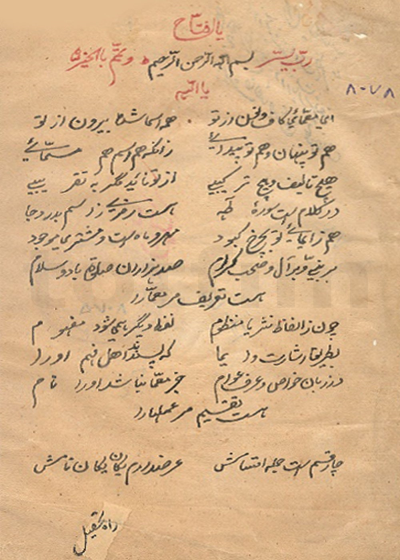 یا فتاح
رب یسّر بسم الله الرحمن الرحیم و تمّم بالخیر
یا الله
۸۰۷۸
ای معمای کاف و نون از تو همه اسما شده بیرون از تو
هم تو پنهان و هم تو پیدایی زانکه هم اسم هم مسمّایی
هیچ تالیف و هیچ ترکیبی از تو ناید مگر به تقریبی
در کلام است سورهٔ طه هست رمزی ز اسم بدر دجا
هم ز ایمای تو بچرخ کبود مهر و ماه است و مشتری موجود
بر نبی و بر آل و صحب کرام صد هزاران صلوة باد و سلام
هست تعریف مر معما را
چون ز الفاظ نثر یا منظوم لفظ دیگر همی شود مفهوم
بطریق اشارت و ایما که پسندند اهل فهم او را
در زبان خواص و عرف عوام جز معما نباشد او را نام
هست تقسیم مر عملها را
چار قسم است جمله اقسامش عرضه دارم یکان یکان نامش